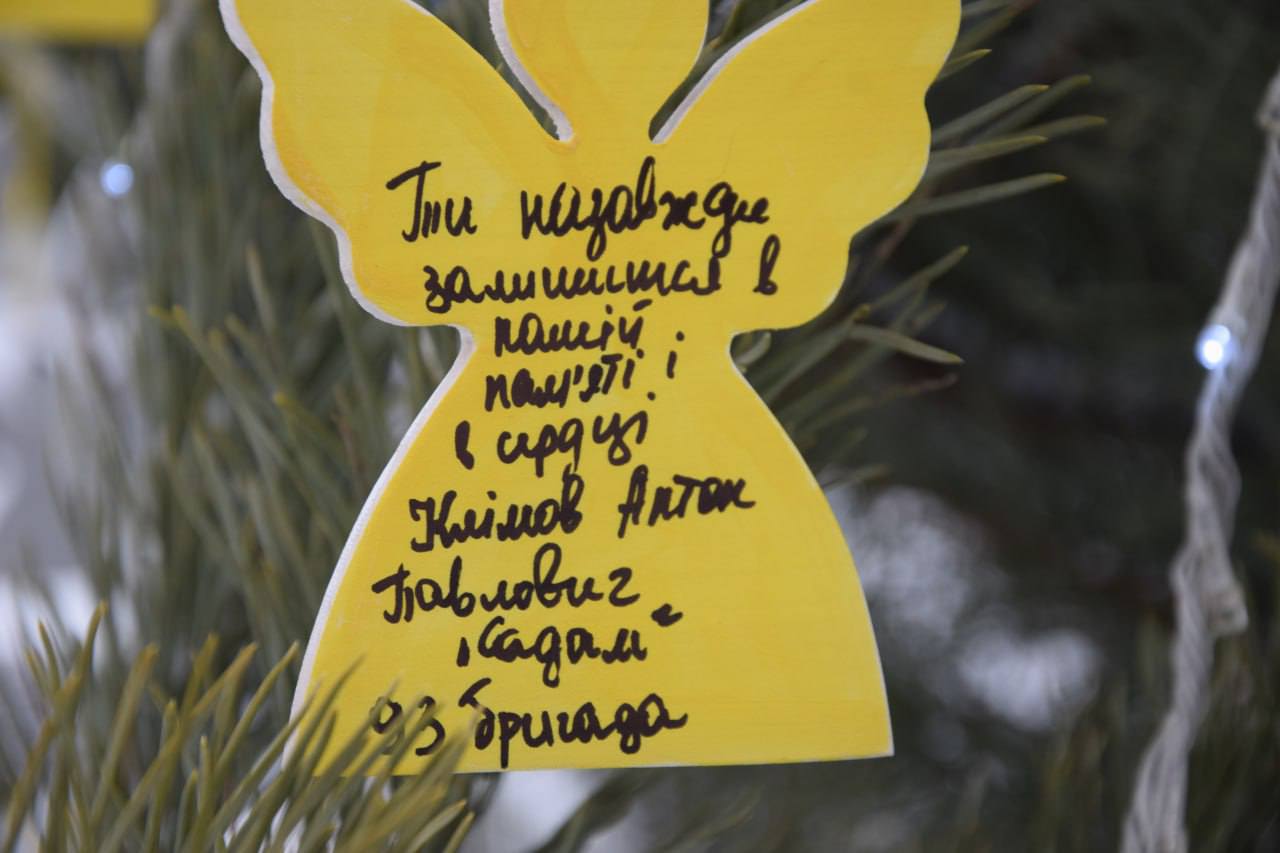 Ти назавжди
залишишся в
нашій
пам'яті і
в сердці
Клімов Антон
Павлович
„Садам"
93 бригада